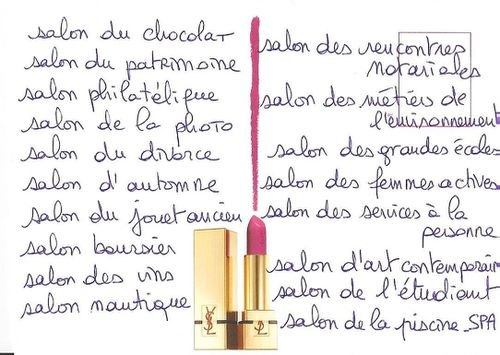 salon du chocolat
salon du patrimoine
salon philatélique
salon de la photo
salon du divorce
salon d'automne
salon du jouet ancien
salon boursier
salon des vins
salon nautique
salon des rencontres
notariales
salon des métiers de
l'environnement
salon des grandes écoles
salon des femmes actives
salon des services à la
personne
salon d'art contemporain
salon de l'étudiant
salon de la piscine_SPA
YSL
YSL